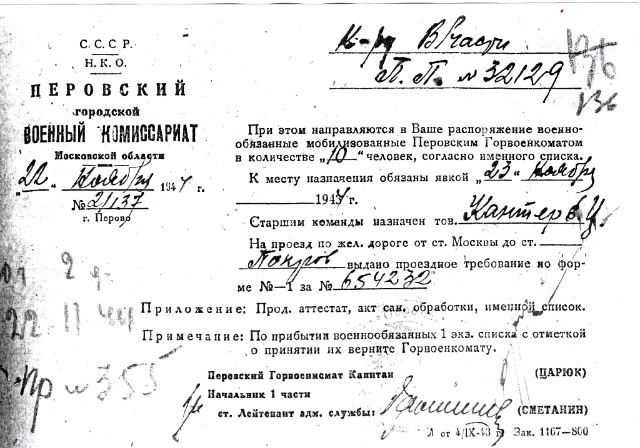 С. С. С. Р.
Н. К. О.
ПЕРОВСКИЙ
городской
ВОЕННЫЙ КОМИССАРИАТ
Московской области
„22“ Ноября 1944 г.
№ 21137
г. Перово
К-ру В/части
П. П. № 32129
136
136
При этом направляются в Ваше распоряжение военно-
обязанные мобилизованные Перовским Горвоенкоматом
в количестве „10“ человек, согласно именного списка.
К месту назначения обязаны явкой „23“ Ноября
1944 г.
Старшим команды назначен тов. Кантер Б. Ц.
На проезд по жел. дороге от ст. Москвы до ст.
Покров выдано проездное требование по фор-
ме №—1 за № 654232
Приложение: Прод. аттестат, акт сан. обработки, именной список.
Примечание: По прибытии военнообязанных 1 экз. списка с отметкой
о принятии их верните Горвоенкомату.
2
22 11 44
Пр № 355
Перовский Горвоенкомат Капитан (ЦАРЮК)
Начальник 1 части
ст. Лейтенант адм. службы: (СМЕТАНИН)
Л от 4/IX-43 г. Зак. 1167—800